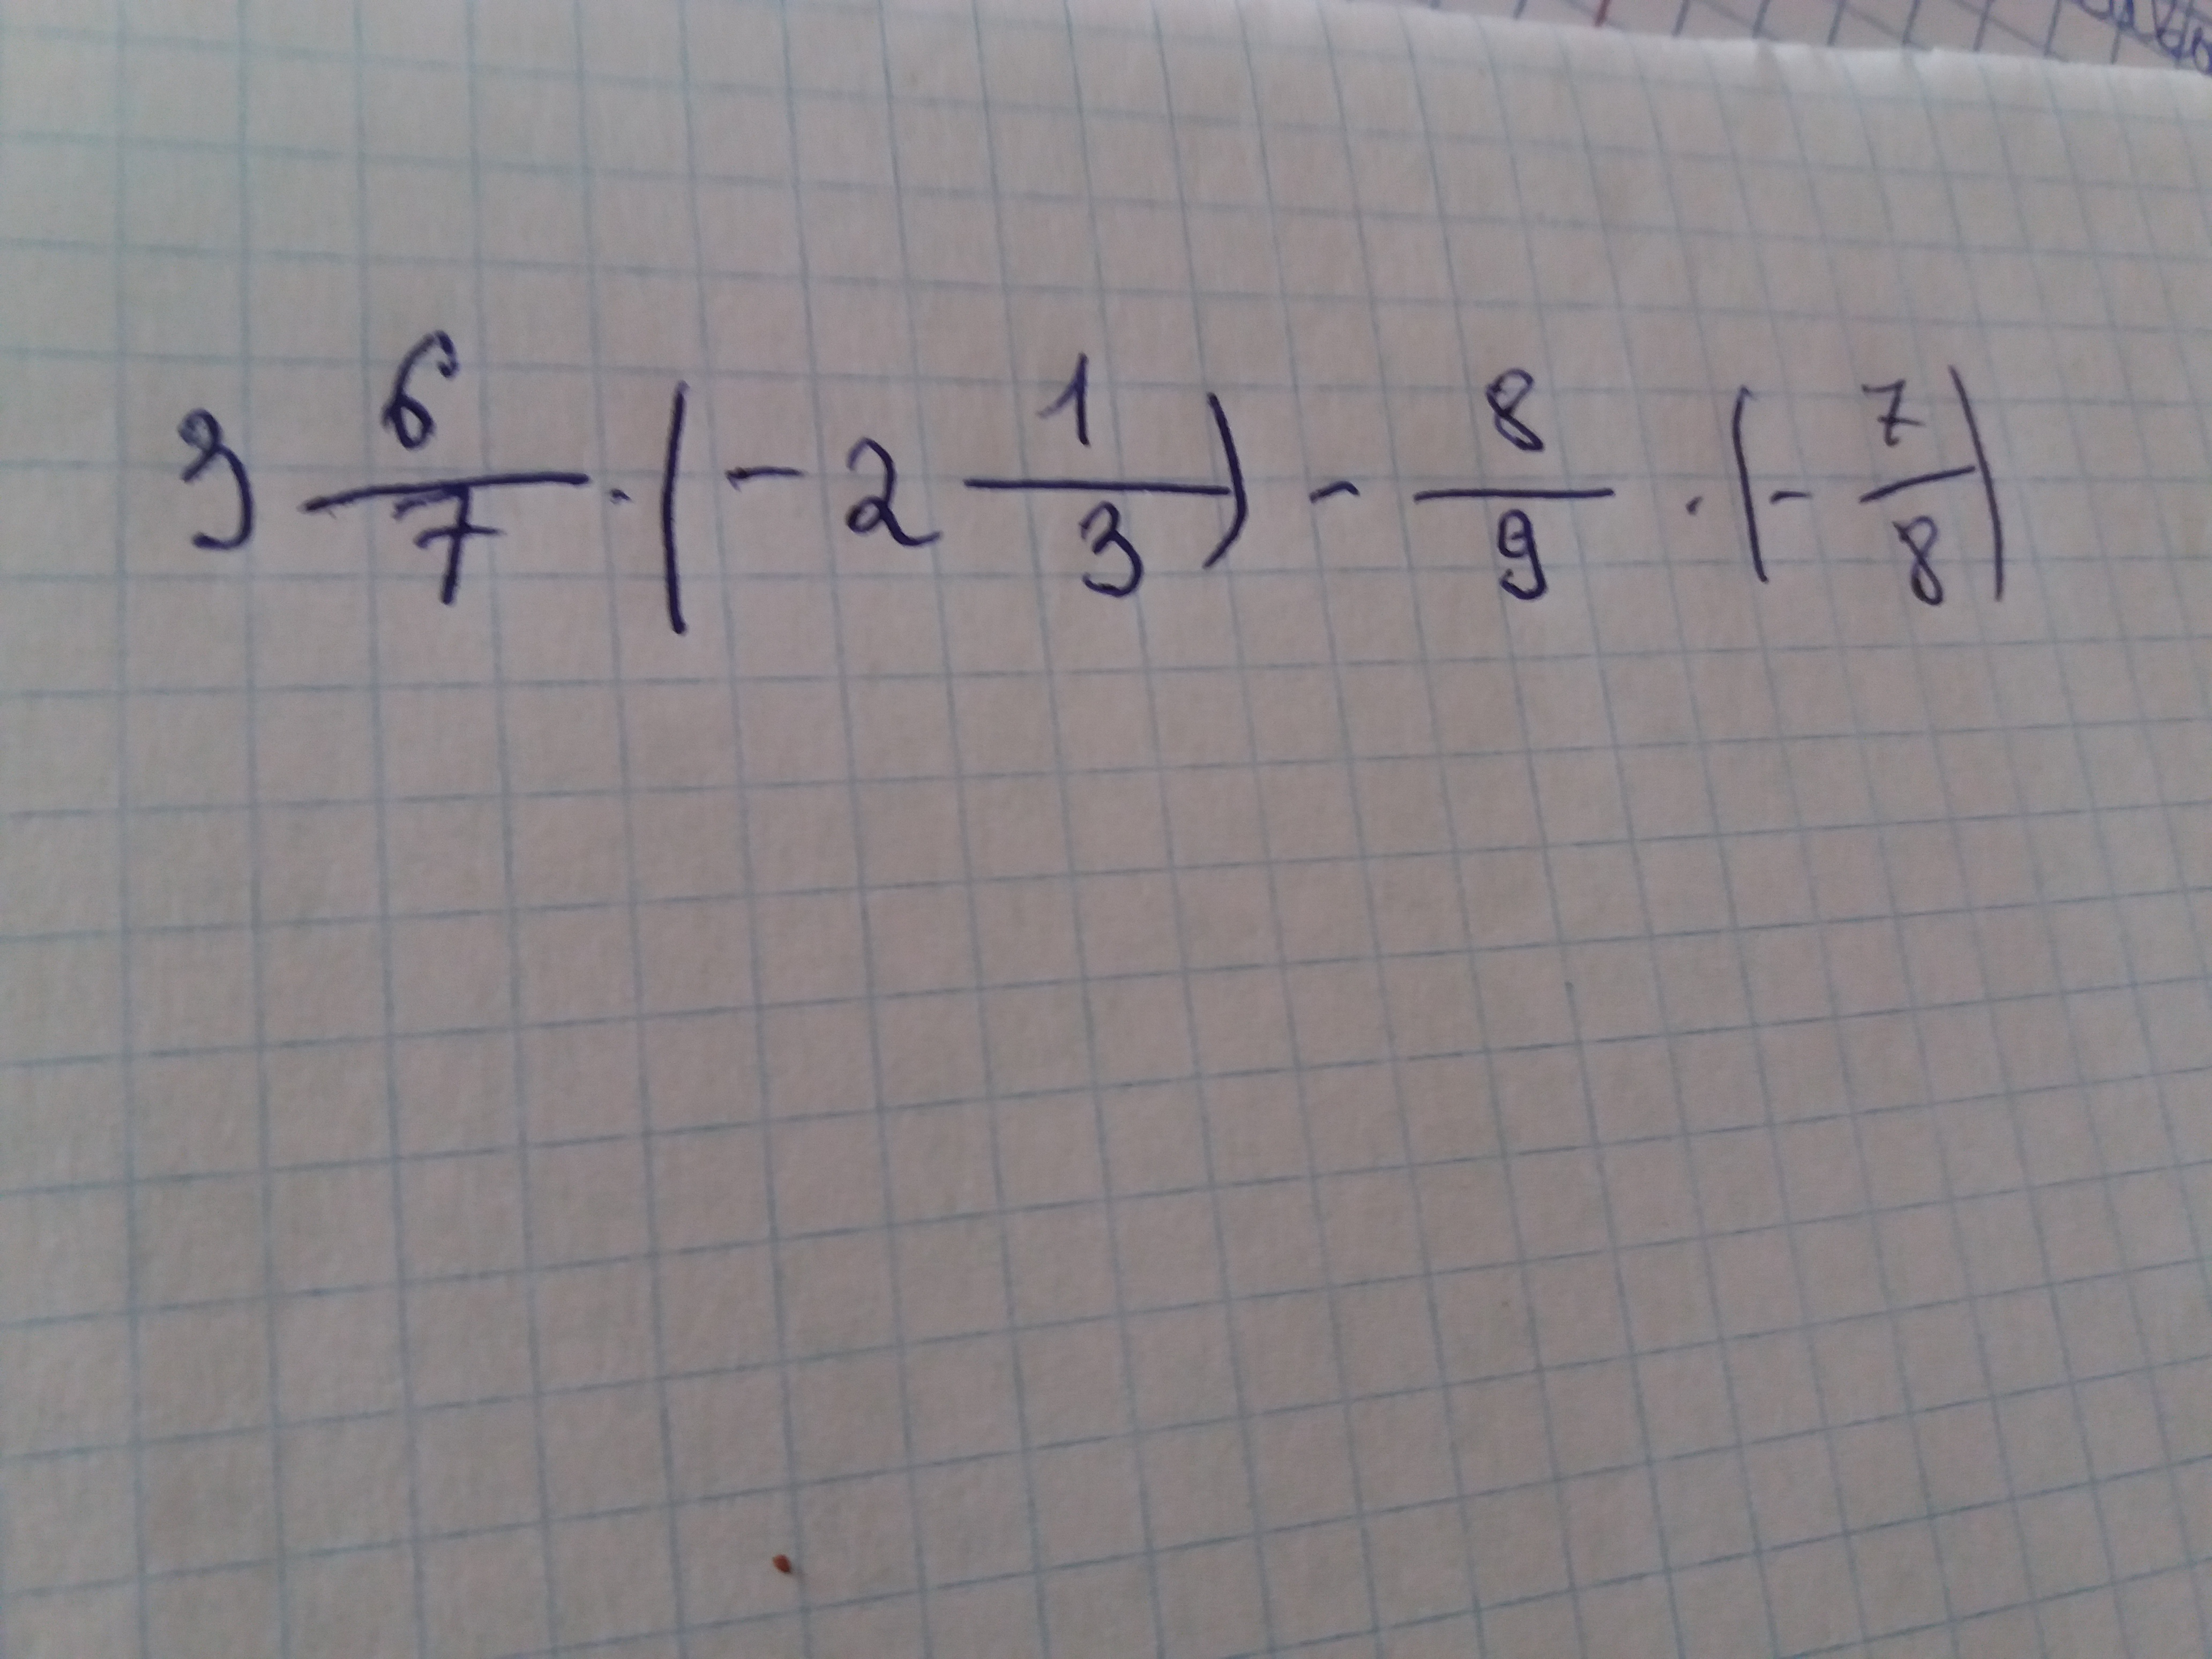 3 6/7 · (- 2 1/3) - 8/9 · (- 7/8)